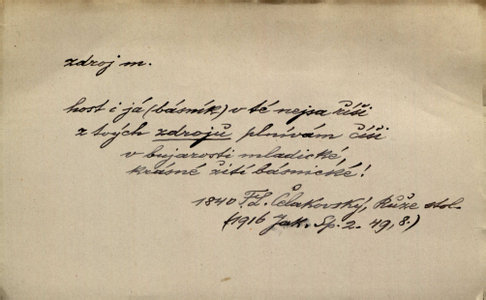 zdroj m.
host i já (básník) v té nejsa říši
z tvých zdrojů plnívám číši
v bujarosti mladické,
krásné žití básnické!
1840 F.L. Čelakovský, Růže stol.
(1916 Jak. Sp. 2. 49, 8.)